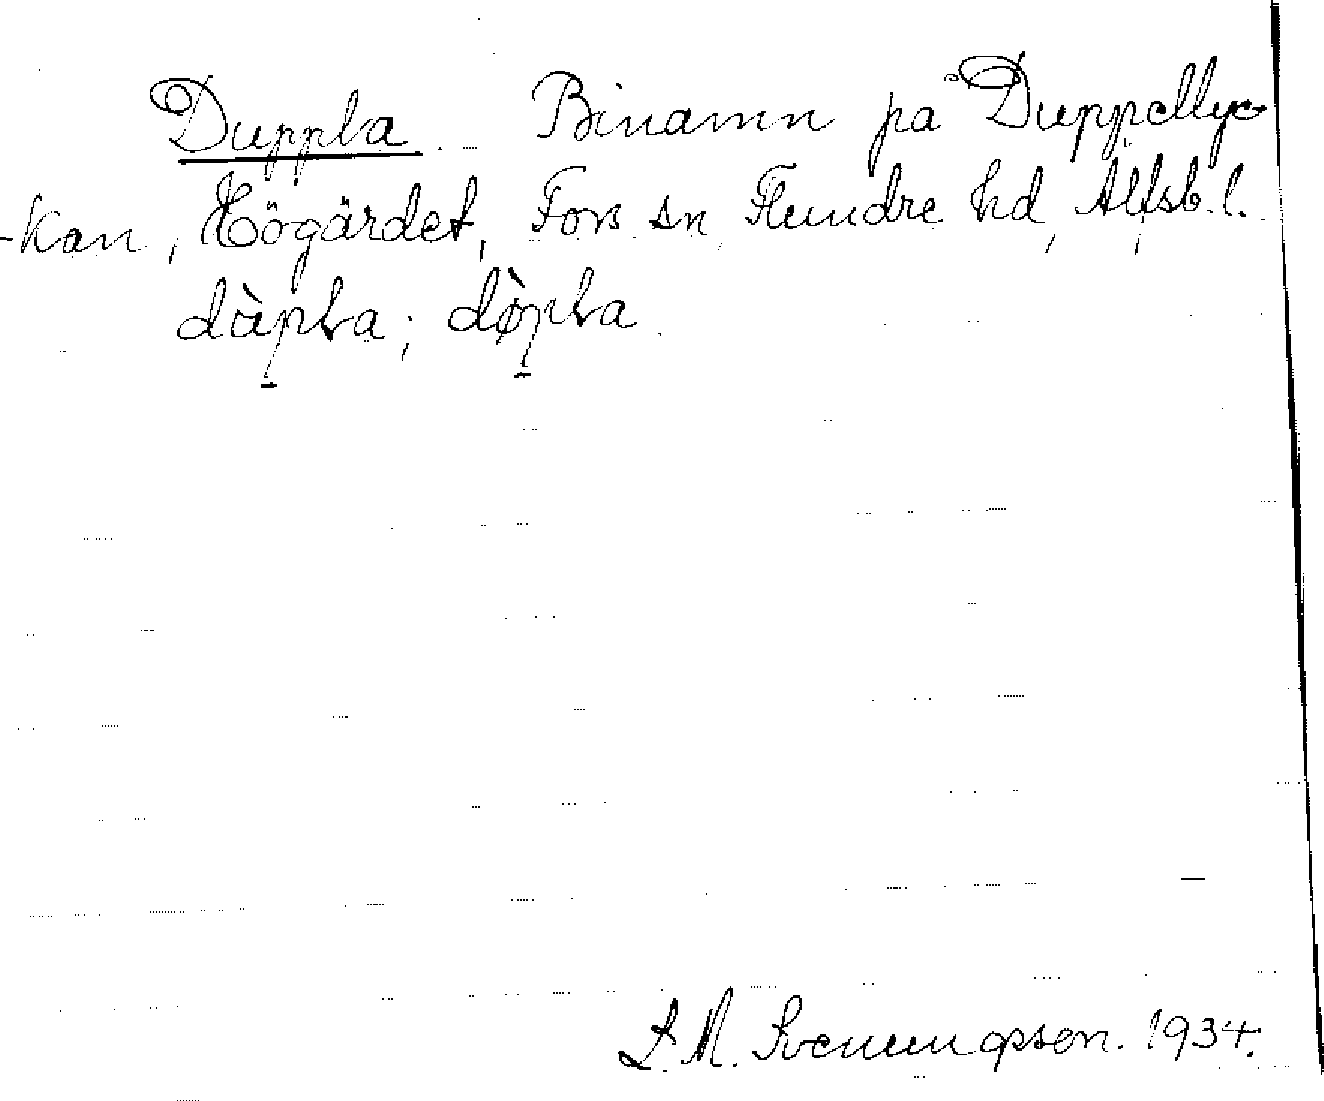 Duppla. Binamn på Duppellyc-
-kan, Högärdet, Fors sn, Flundre hd, Älfsb. l.
dàpla; dø̀pla.
L. M. Svenungsson. 1934.